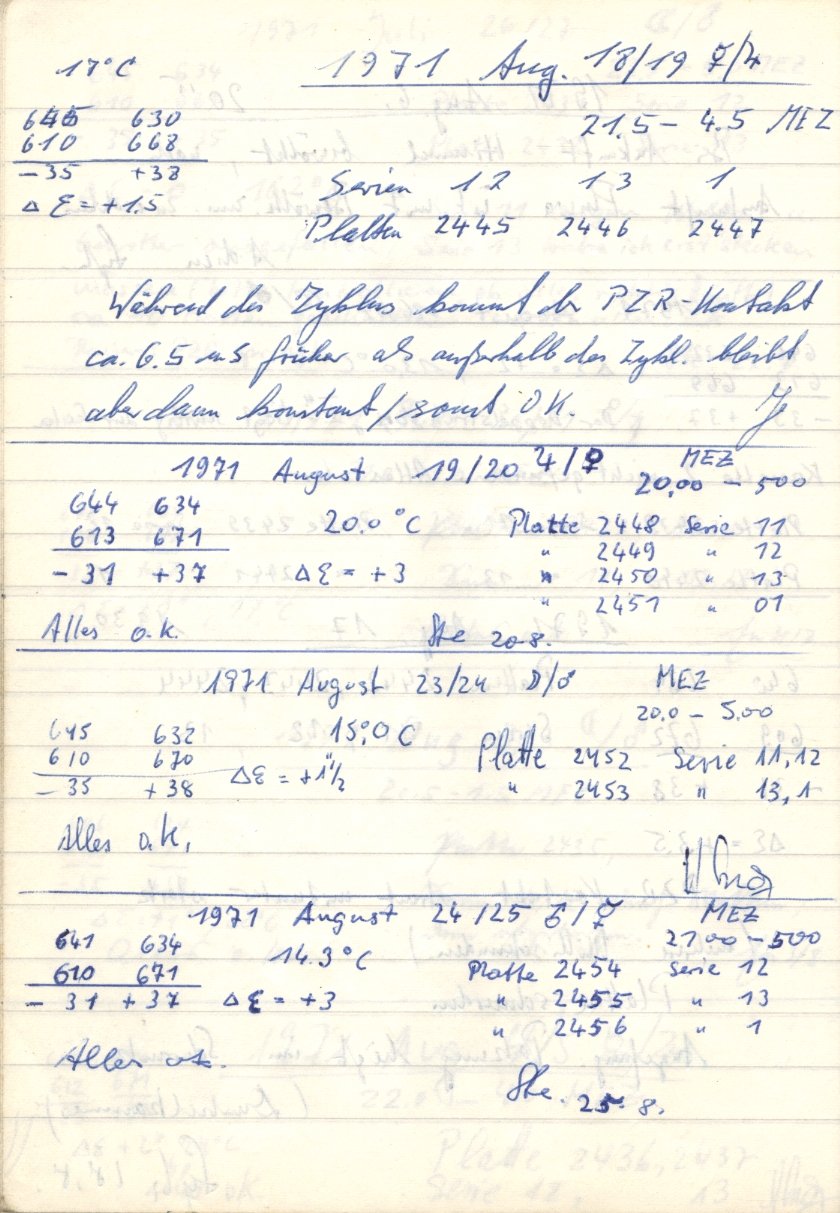 17°C 1971 Aug. 18/19 ☿/♃
645 630 21.5 – 4.5 MEZ
610 668
-35 +38 Serien 12 13 1
Δε = +1.5 Platten 2445 2446 2447
Während des Zyklus kommt der PZR-Kontakt
ca. 6.5 ms früher als außerhalb des Zykl. bleibt
aber dann konstant/sonst OK.
1971 August 19/20 ♃/♀ MEZ
20.00 – 500
644 634 20.0 °C Platte 2448 Serie 11
613 671 " 2449 " 12
-31 +37 Δε = +3 " 2450 " 13
" 2451 " 01
Alles o.k. Ste 20.8.
1971 August 23/24 ☽/♂ MEZ
20.0 – 5.00
645 632 15.°0 C Platte 2452 Serie 11,12
610 670 Δε = +1"1/2 " 2453 " 13,1
-35 +38
Alles o.k.
1971 August 24/25 ♂/☿ MEZ
641 634 14.3°C 21.00 – 500
610 671 Platte 2454 Serie 12
-31 +37 Δε = +3 " 2455 " 13
" 2456 " 1
Alles o.k.
Ste. 25.8.